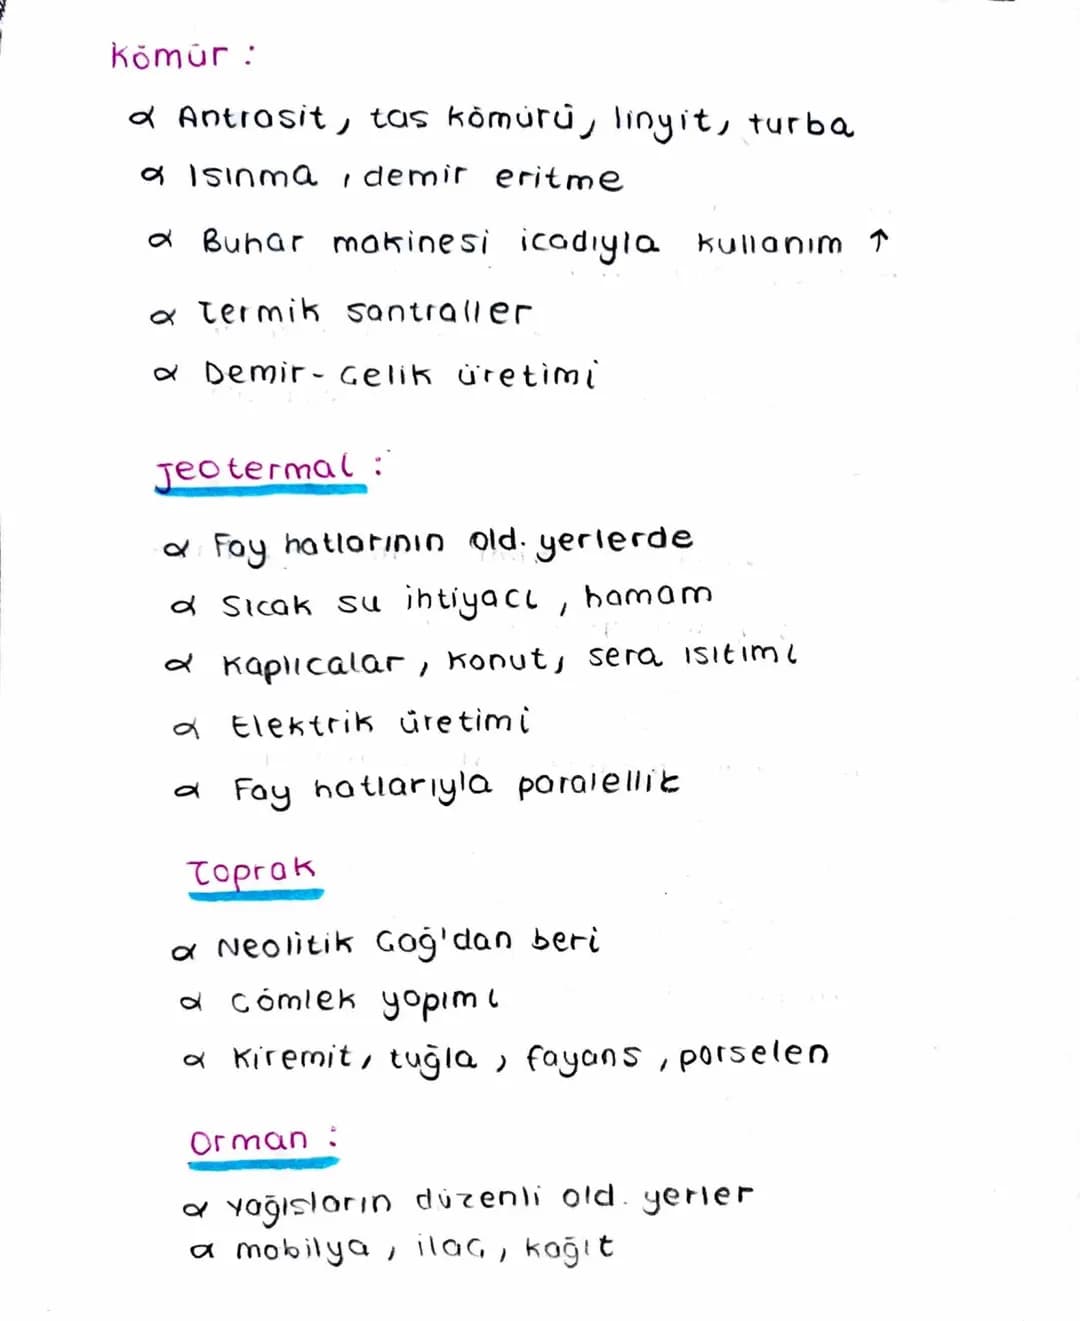 Kömür :
α Antrasit, tas kömürü, linyit, turba
α Isınma, demir eritme
α Buhar makinesi icadıyla kullanım ↑
α Termik santraller
α Demir-Gelik üretimi
Jeotermal :
α Fay hatlarının old. yerlerde
α Sıcak su ihtiyacı, hamam
α Kaplıcalar, konut, sera ısıtımı
α Elektrik üretimi
α Fay hatlarıyla paralellik
Toprak
α Neolitik Gağ'dan beri
α Cömlek yapımı
α Kiremit, tuğla, fayans, porselen
Orman :
α Yağısların düzenli old. yerler
α mobilya, ilaG, kağıt